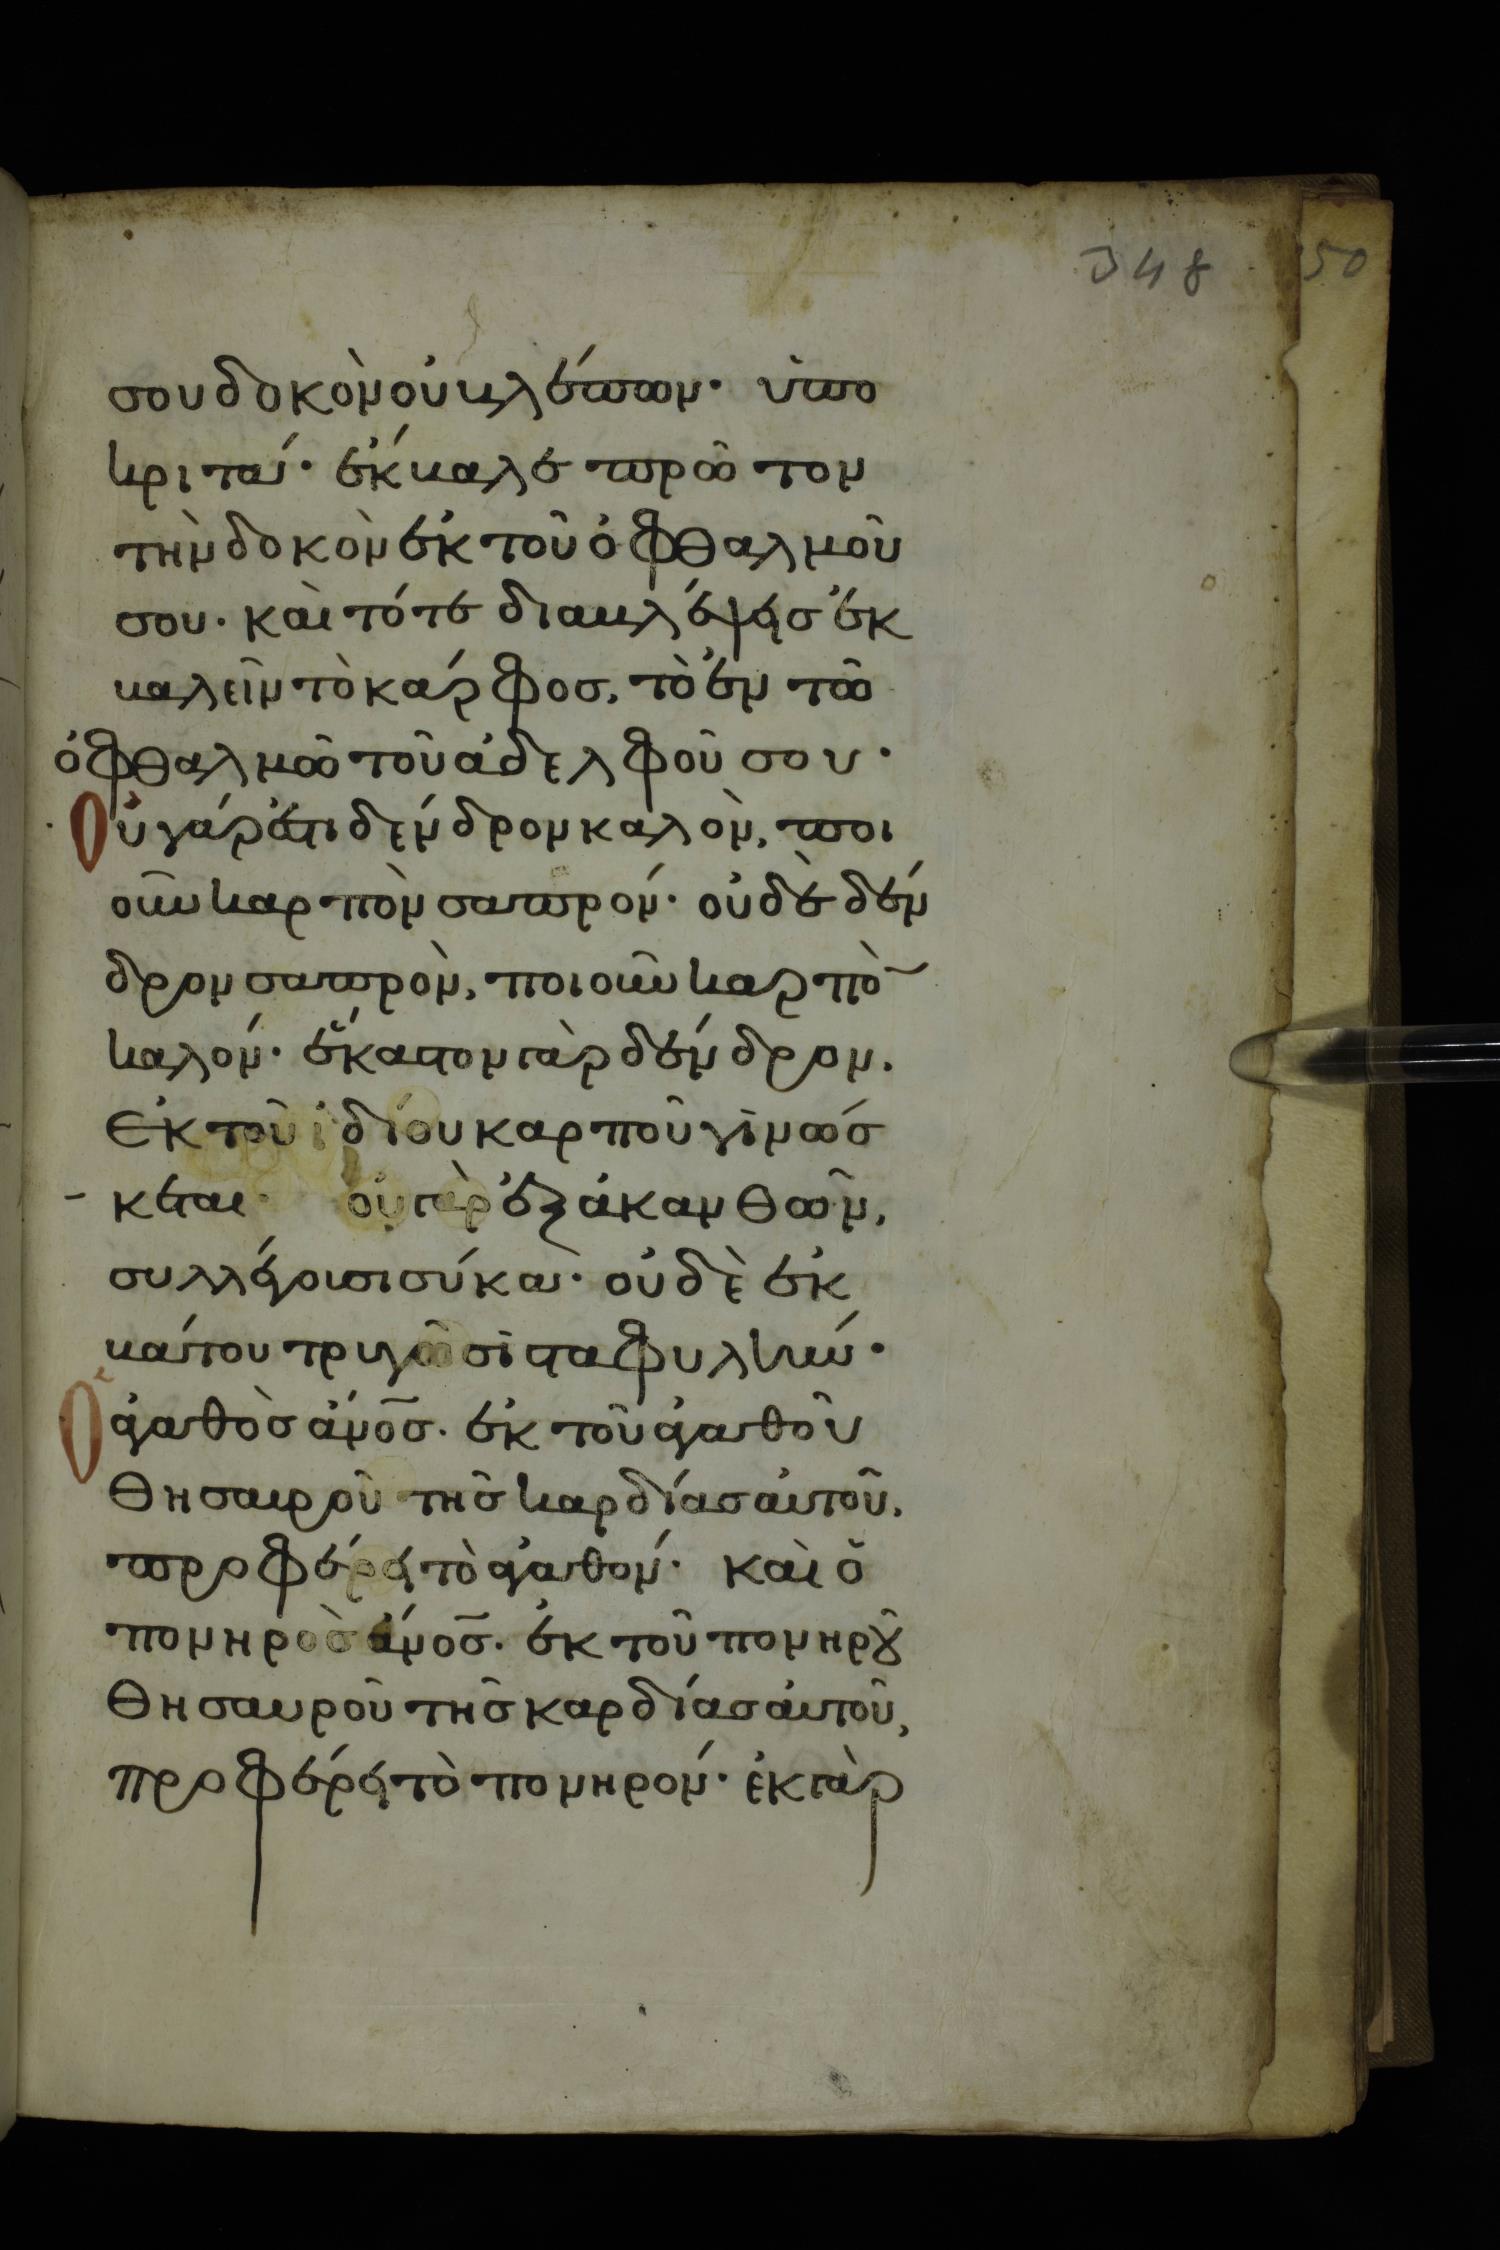 σου δοκὸν οὐ βλέπων· ὑπο
κριτά· ἔκβαλε πρῶτον
τὴν δοκὸν ἐκ τοῦ ὀφθαλμοῦ
σου· καὶ τότε διαβλέψεις ἐκ
βαλεῖν τὸ κάρφος, τὸ ἐν τῶ
ὀφθαλμῶ τοῦ ἀδελφοῦ σου·
Οὐ γάρ ἐστι δένδρον καλὸν, ποι
οῦν καρπὸν σαπρόν· οὐδὲ δέν
δρον σαπρὸν, ποιοῦν καρπὸ̄
καλόν· ἕκαστον γὰρ δένδρον,
ἐκ τοῦ ἰδίου καρποῦ γινώσ
κεται· οὐ γὰρ ἐξ ἀκανθῶν,
συλλέγουσι σύκα· οὐδὲ ἐκ
βάτου τρυγῶσι σταφυλήν·
Ὁ ἀγαθὸς ἄνο̄ς. ἐκ τοῦ ἀγαθοῦ
θησαυροῦ τῆς καρδίας αὐτοῦ,
προφέρει τὸ ἀγαθόν· καὶ ὁ
πονηρὸς ἄνο̄ς. ἐκ τοῦ πονηρȣ͂
θησαυροῦ τῆς καρδίας αὐτοῦ,
προφέρει τὸ πονηρόν· ἐκ γὰρ
348
50